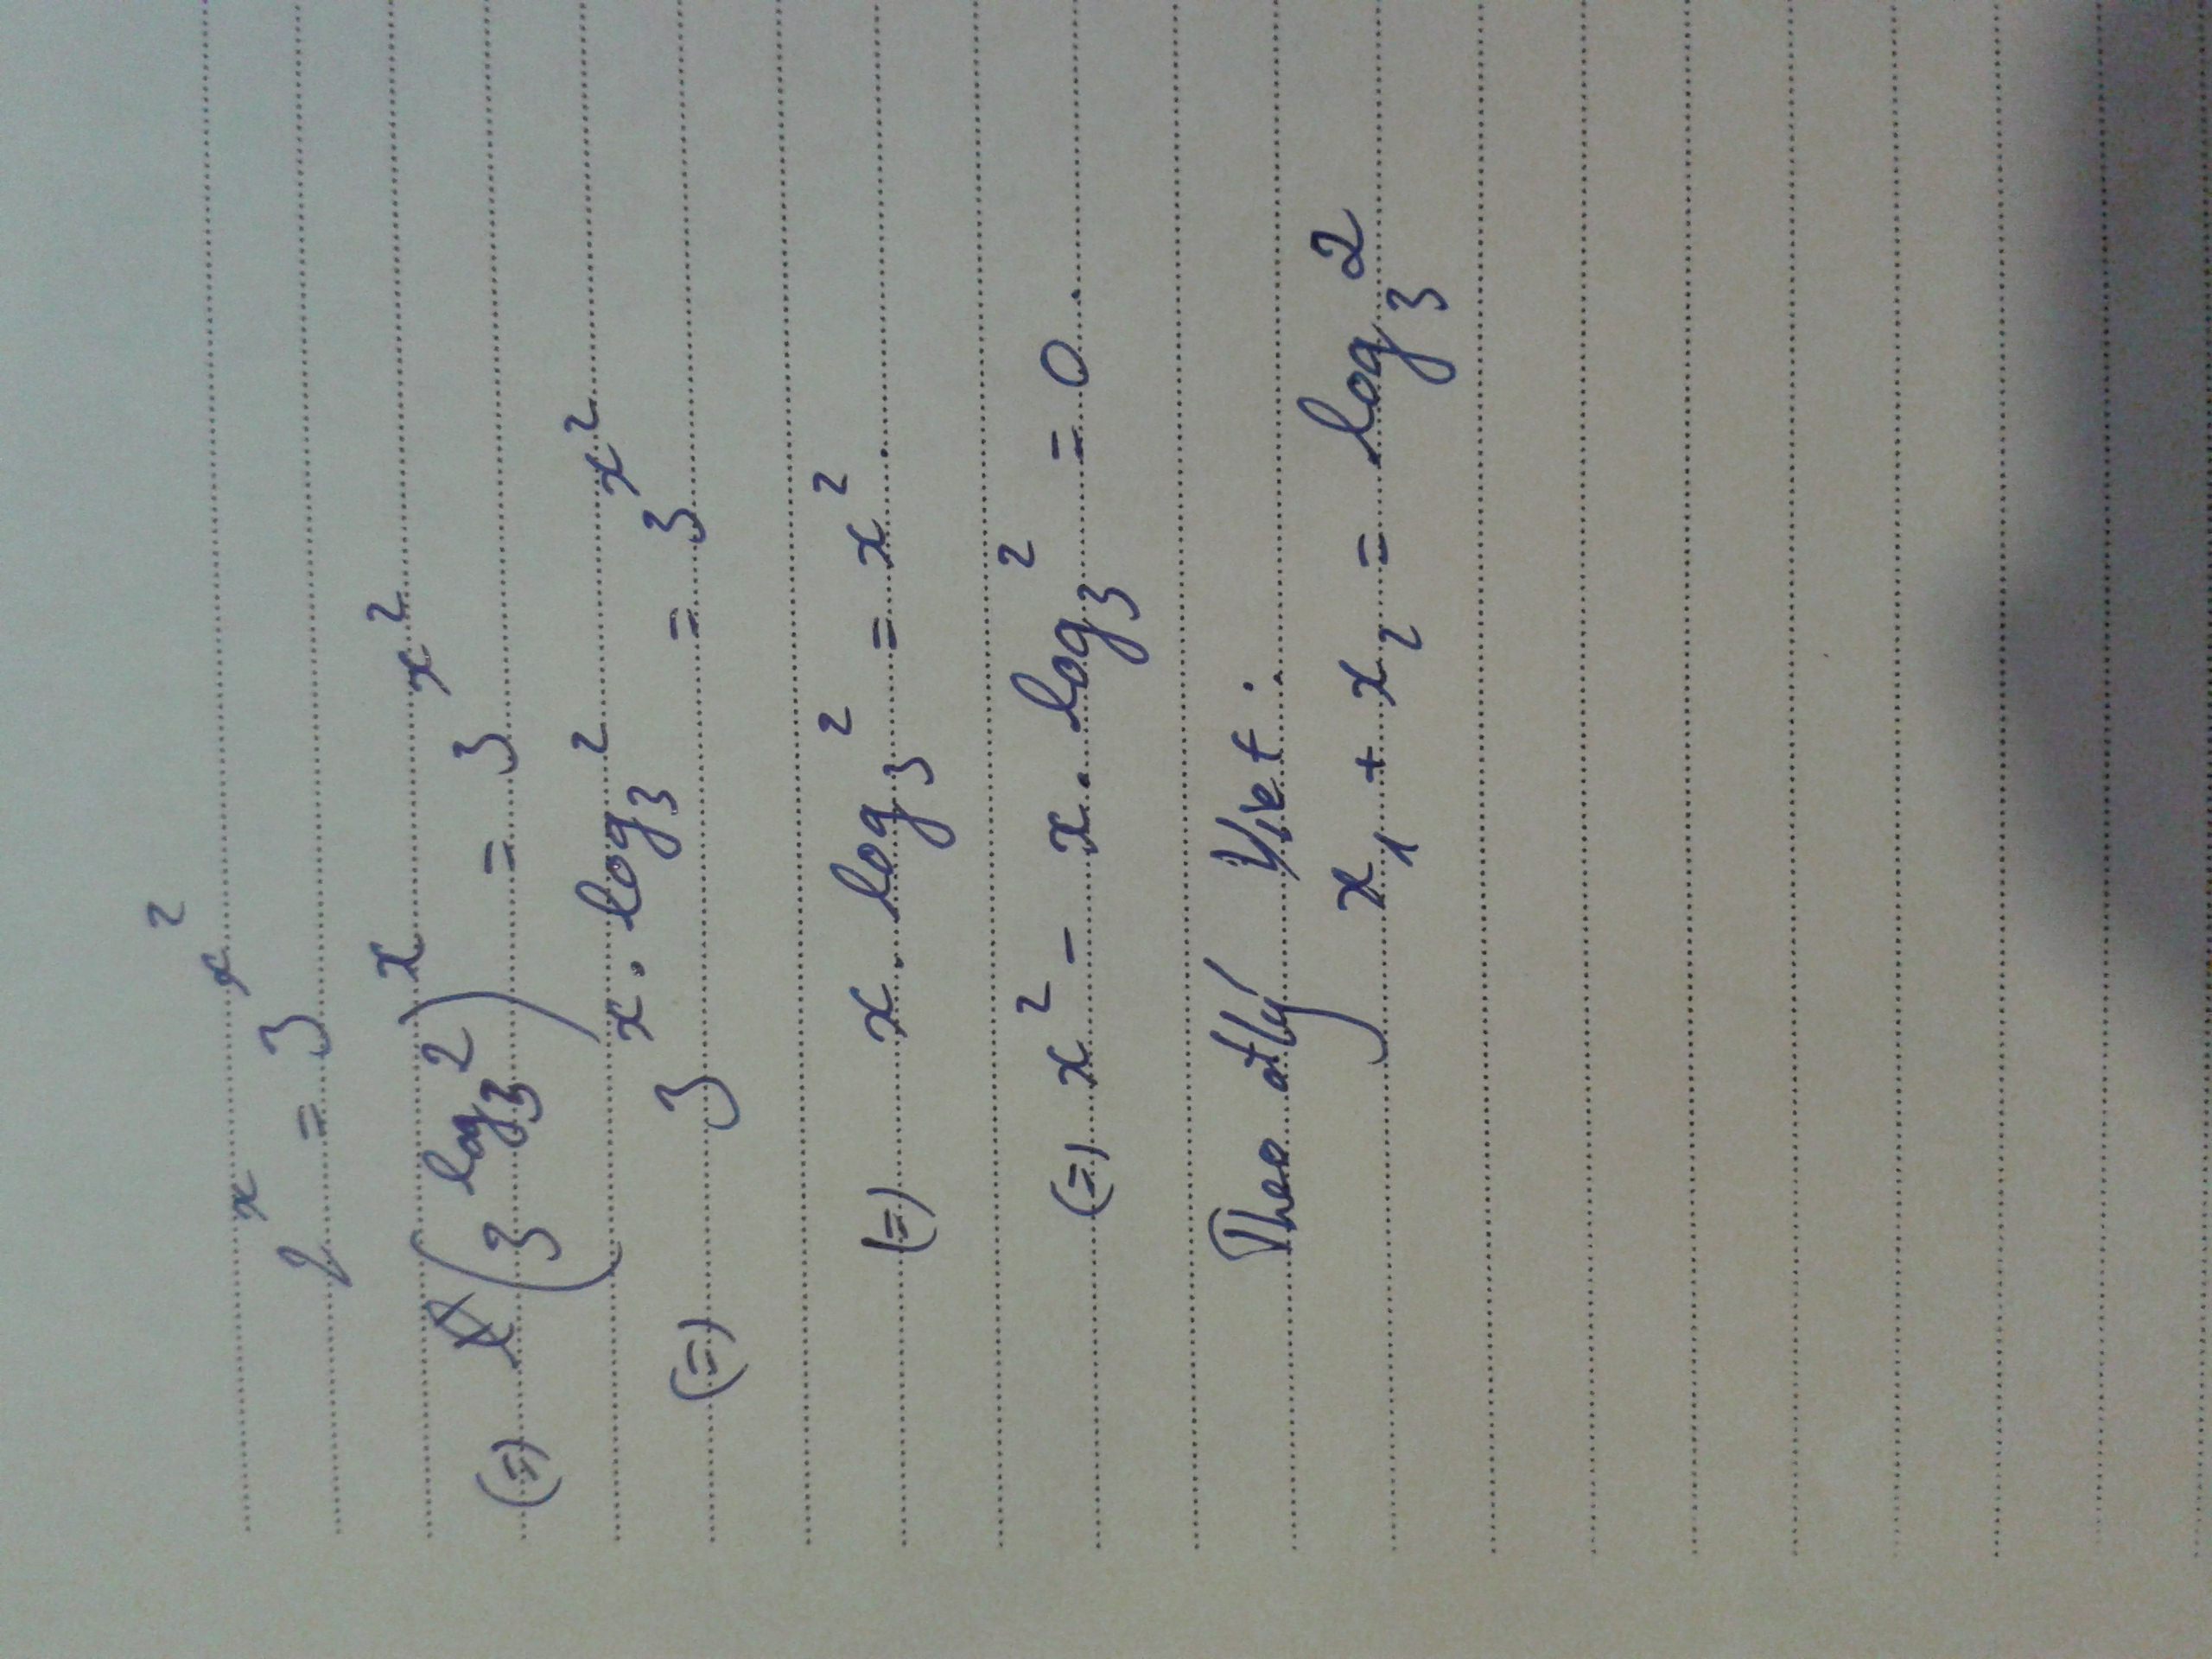 2^x = 3^x^2
(=) (3^log_3 2)^x = 3^x^2
(=) 3^x.log_3 2 = 3^x^2
(=) x.log_3 2 = x^2.
(=) x^2 - x.log_3 2 = 0.
Theo đlý Viet:
x_1 + x_2 = log_3 2